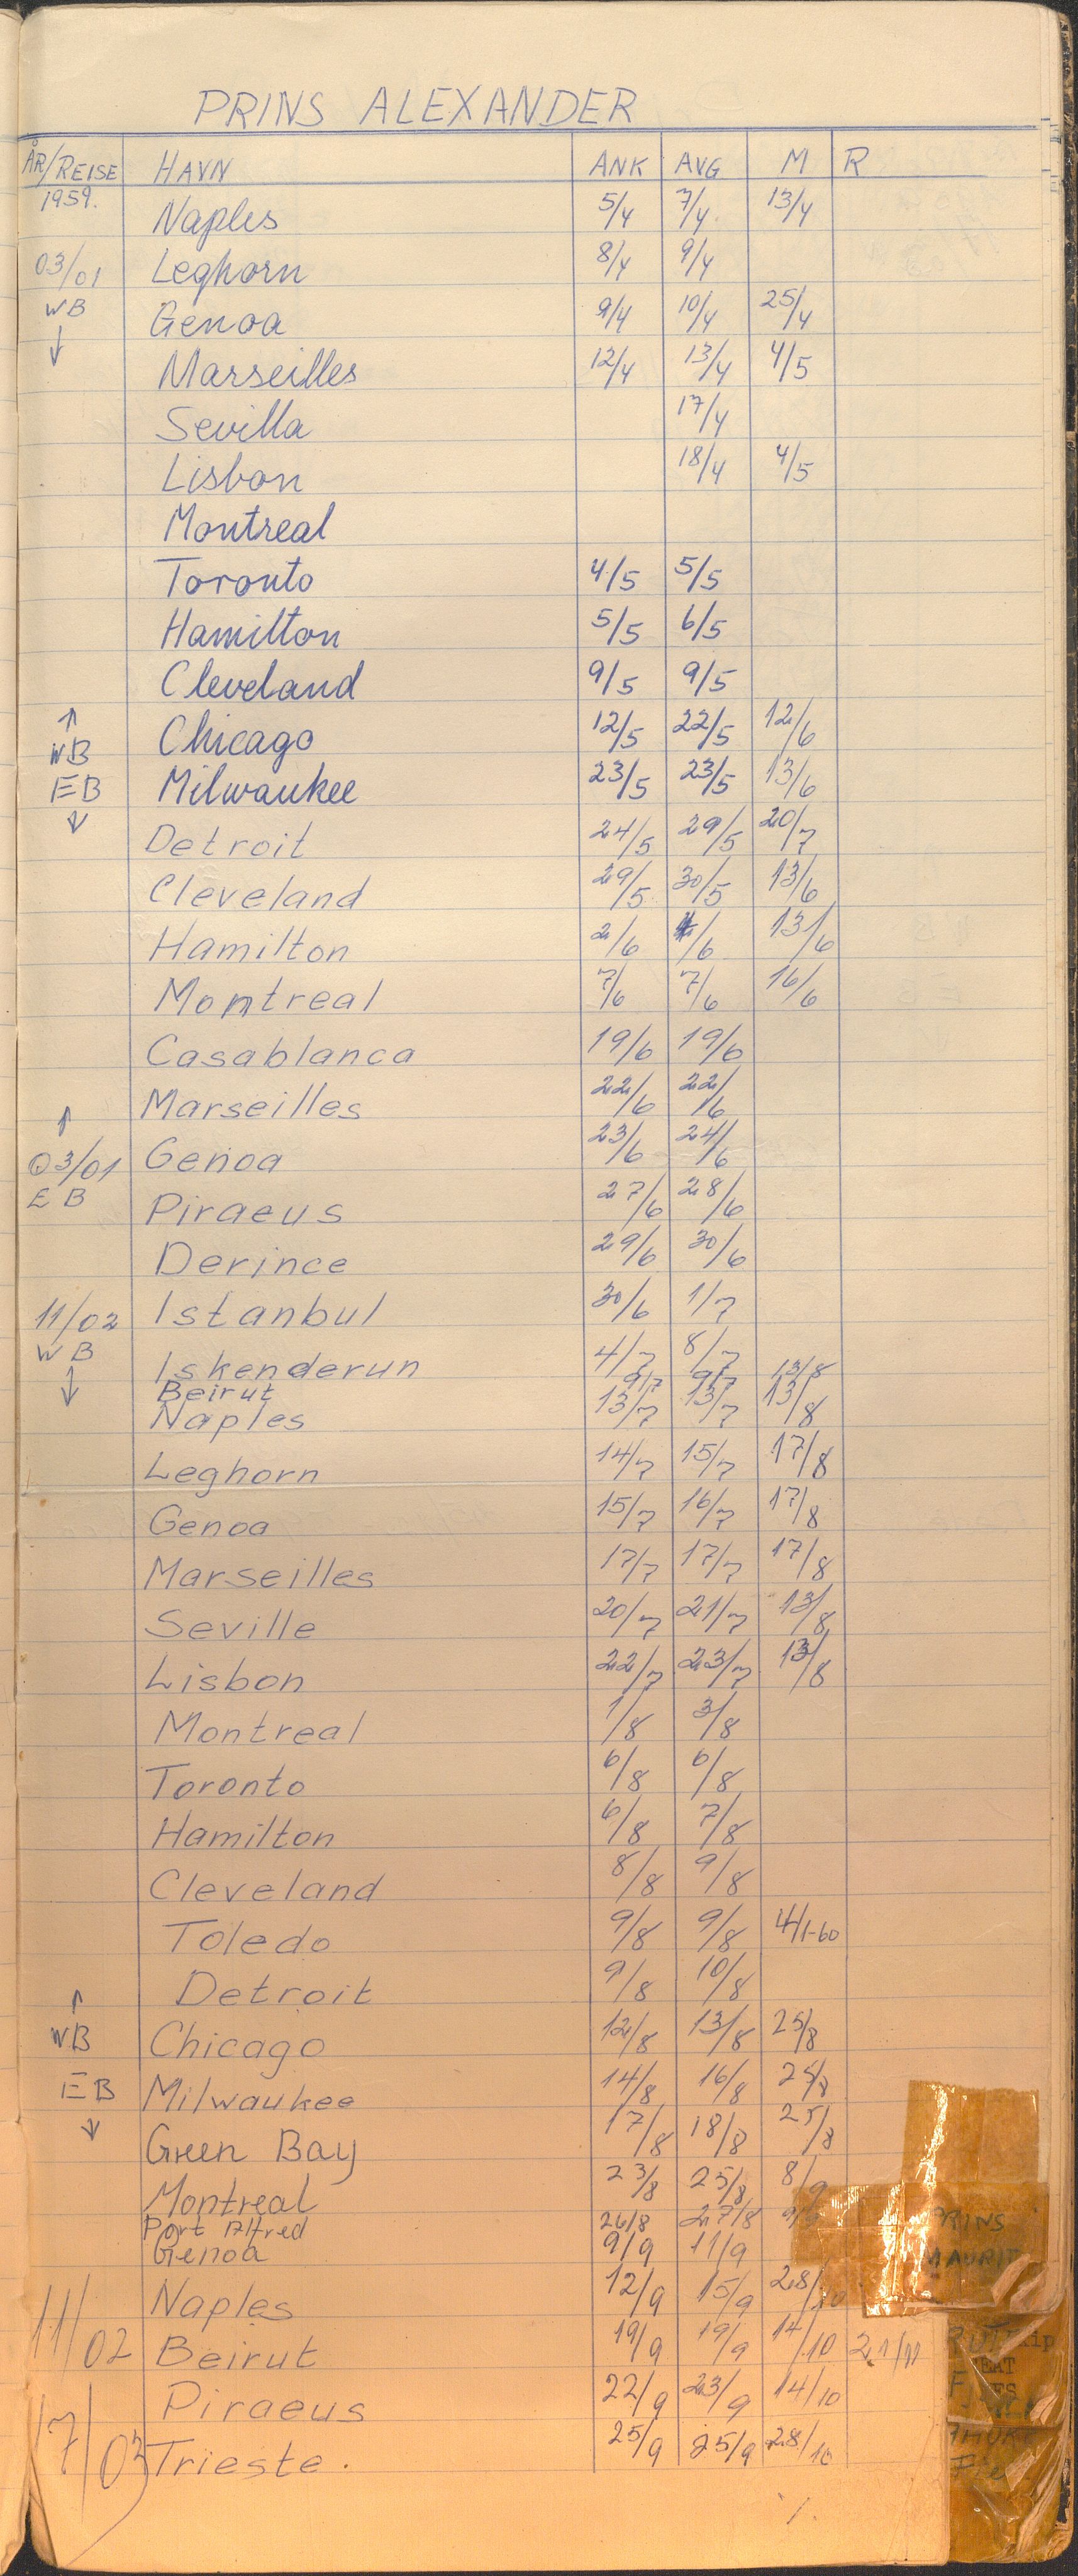 PRINS ALEXANDER
ÅR/REISE HAVN ANK AVG M R
1959. Naples 5/4 7/4. 13/4
03/01 Leghorn 8/4 9/4
WB Genoa 9/4 10/4 25/4
↓ Marseilles 12/4 13/4 4/5
Sevilla 17/4
Lisbon 18/4 4/5
Montreal
Toronto 4/5 5/5
Hamilton 5/5 6/5
Cleveland 9/5 9/5
↑ WB Chicago 12/5 22/5 12/6
EB Milwaukee 23/5 23/5 13/6
↓ Detroit 24/5 29/5 20/7
Cleveland 29/5 30/5 13/6
Hamilton 2/6 4/6 13/6
Montreal 7/6 7/6 16/6
Casablanca 19/6 19/6
↑ Marseilles 22/6 22/6
03/01 Genoa 23/6 24/6
EB Piraeus 27/6 28/6
Derince 29/6 30/6
11/02 Istanbul 30/6 1/7
WB Iskenderun 4/7 8/7
↓ Beirut 9/7 9/7 13/8
Naples 13/7 13/7 13/8
Leghorn 14/7 15/7 17/8
Genoa 15/7 16/7 17/8
Marseilles 17/7 17/7 17/8
Seville 20/7 21/7 13/8
Lisbon 22/7 23/7 13/8
Montreal 1/8 3/8
Toronto 6/8 6/8
Hamilton 6/8 7/8
Cleveland 8/8 9/8
Toledo 9/8 9/8 4/1-60
↑ Detroit 9/8 10/8
WB Chicago 12/8 13/8 25/8
EB Milwaukee 14/8 16/8 25/8
↓ Green Bay 17/8 18/8 25/8
Montreal 23/8 25/8 8/9
Port Alfred 26/8 27/8
Genoa 9/9 11/9
Naples 12/9 15/9 28/10
11/02 Beirut 19/9 19/9 14/10 21/11
Piraeus 22/9 23/9 14/10
17/03 Trieste. 25/9 25/9 28/10
PRINS